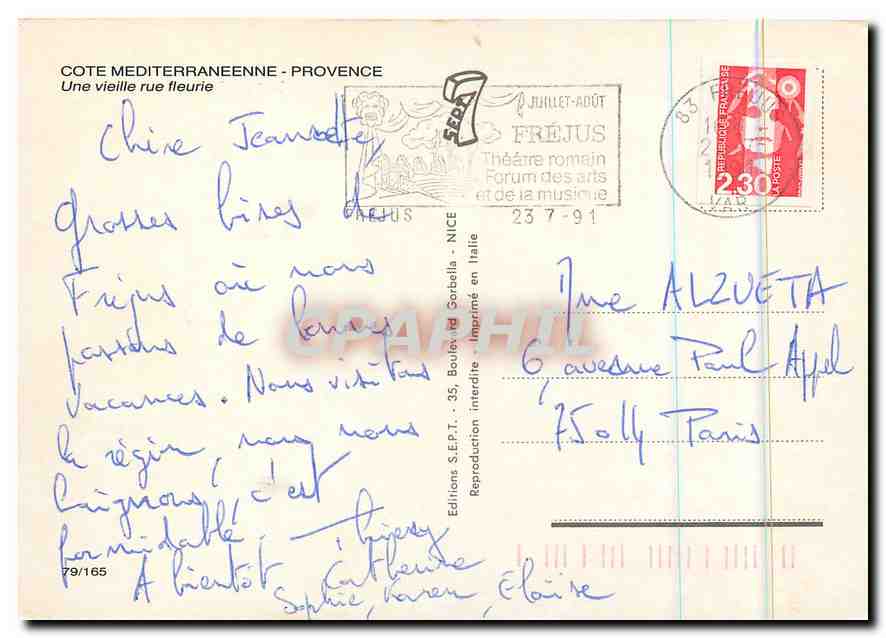 COTE MEDITERRANEENNE - PROVENCE
Une vieille rue fleurie
Chère Jeannette,
grosses bises de
Fréjus où nous
passons de bonnes
vacances. Nous visitons
la région, nous nous
baignons, c'est
formidable. Thierry
A bientôt Catherine
Sophie, Karen, Éloïse
79/165
SEPT 7
JUILLET-AOÛT
FRÉJUS
Théâtre romain
Forum des arts
et de la musique
FREJUS 23 7 -91
83
VAR
REPUBLIQUE FRANÇAISE
2,30
LA POSTE
Editions S.E.P.T. - 35, Boulevard Gorbella - NICE
Reproduction interdite - Imprimé en Italie
CPAPHIL
Mme ALZUETA
6, avenue Paul Appel
75014 Paris